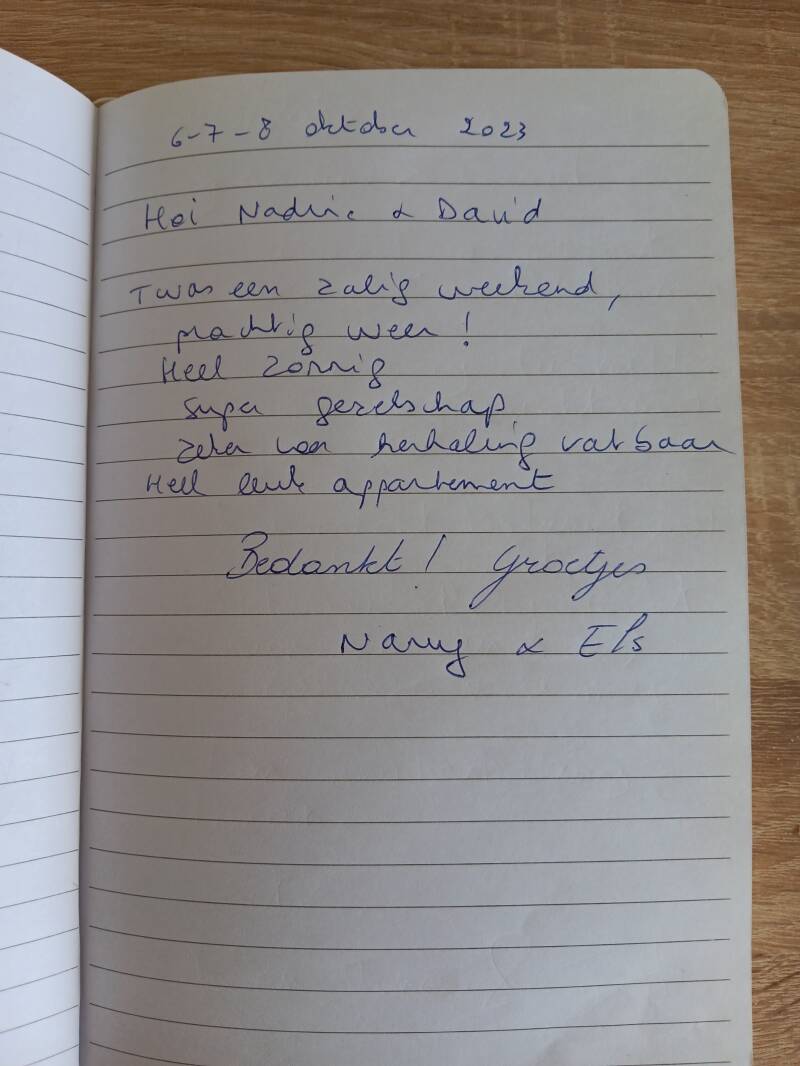 6-7-8 oktober 2023
Hoi Nadine & David
Twas een zalig weekend,
prachtig weer!
Heel zonnig
super gezelschap
zeker voor herhaling vatbaar
Heel leuk appartement
Bedankt! Groetjes
& Els